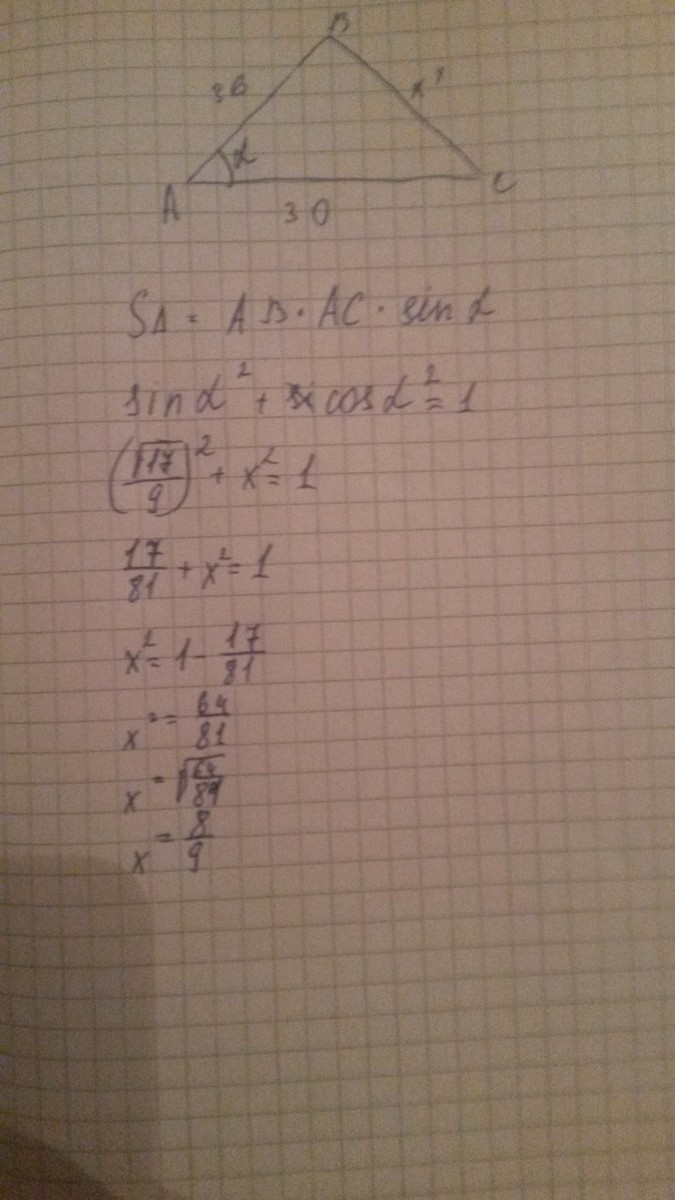 B
36
x
α
A
C
30
SΔ = AB · AC · sin α
sin α² + cos α² = 1
(√17/9)² + x² = 1
17/81 + x² = 1
x² = 1 - 17/81
x² = 64/81
x = √64/81
x = 8/9